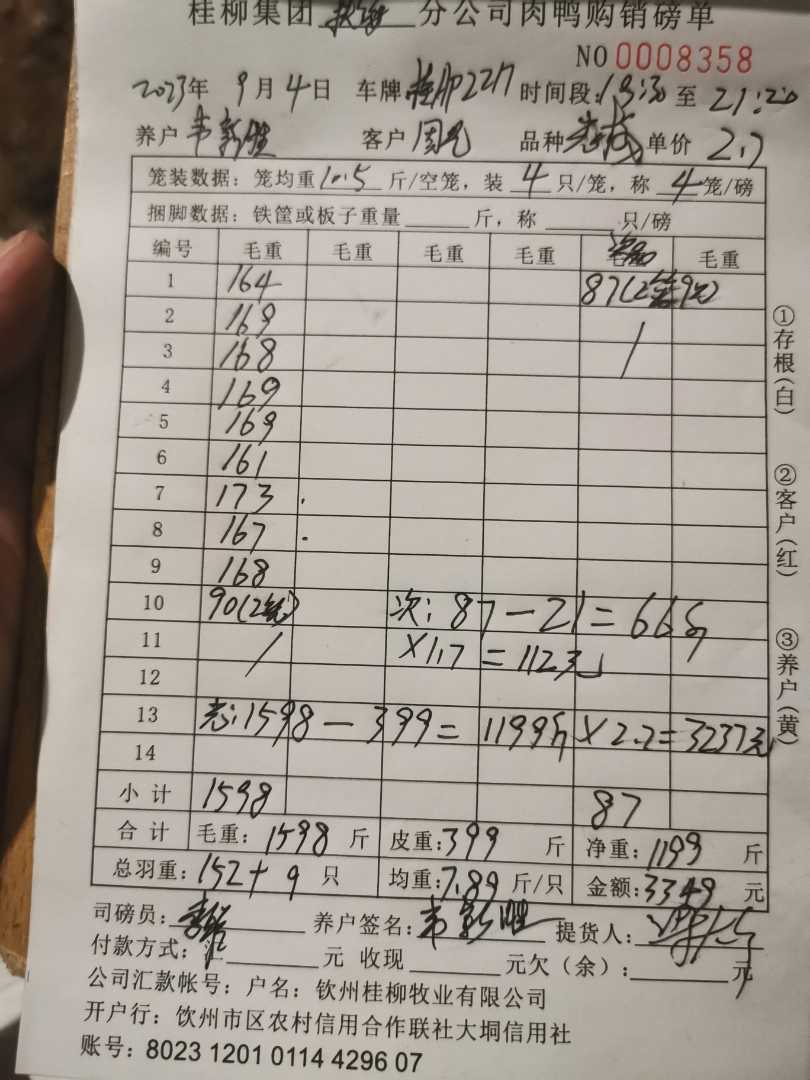 桂柳集团 分公司肉鸭购销磅单
NO 0008358
2023年 9月4日 车牌 桂 时间段: 至 21:20
养户 韦新胜 客户 周 品种 单价 2.7
笼装数据: 笼均重 10.5 斤/空笼, 装 4 只/笼, 称 4 笼/磅
捆脚数据: 铁筐或板子重量 斤, 称 只/磅
编号 毛重 毛重 毛重 毛重 毛重
1 164 87(2笼9只)
2 169 /
3 168
4 169
5 169
6 161
7 173
8 167
9 168
10 90(2笼) 次: 87-21=66斤
11 / ×1.7=112元
12
13 1598-399=1199斤×2.7=3237元
14
小计 1598 87
合计 毛重: 1598 斤 皮重: 399 斤 净重: 1199 斤
总羽重: 152+9 只 均重: 7.89 斤/只 金额: 3349 元
司磅员: 养户签名: 韦新胜 提货人:
付款方式: 元 收现 元欠(余): 元
公司汇款帐号: 户名: 钦州桂柳牧业有限公司
开户行: 钦州市区农村信用合作联社大垌信用社
账号: 8023 1201 0114 4296 07
①存根(白)
②客户(红)
③养户(黄)